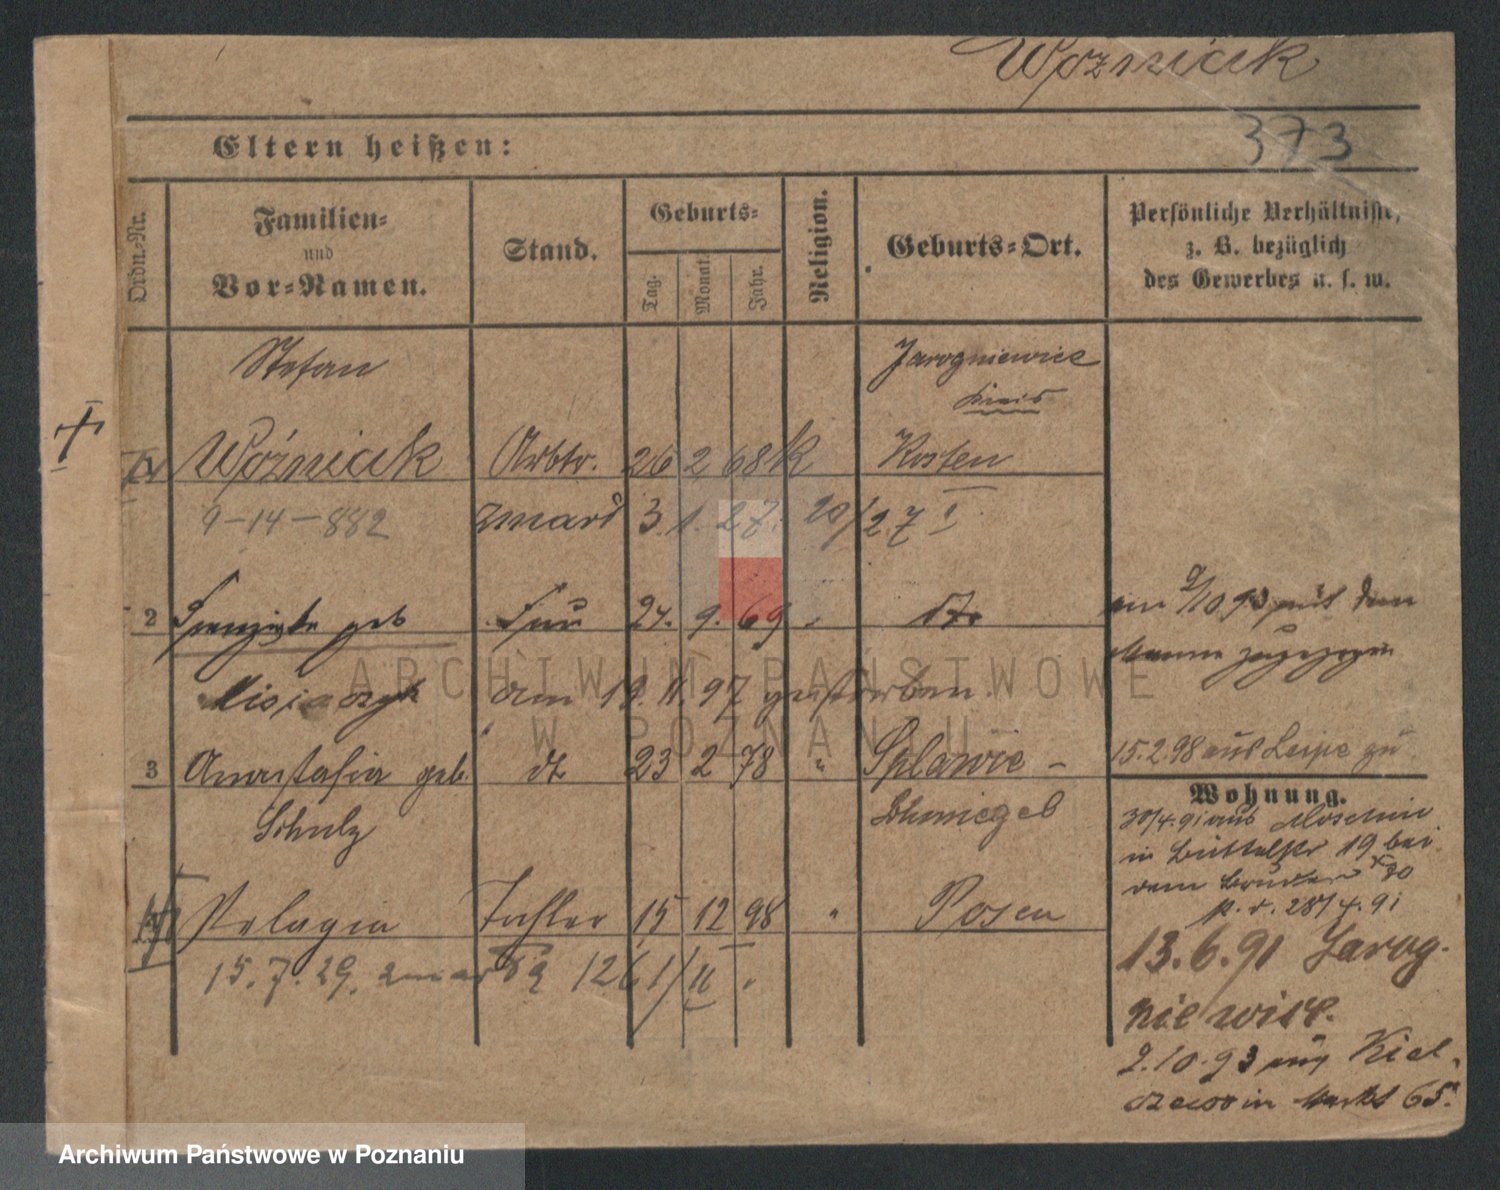 Woźniak
373
Eltern heißen:
Ordn.-Nr.
Familien-
und
Vor-Namen.
Stand.
Geburts-
Tag.
Monat.
Jahr.
Religion.
Geburts-Ort.
Persönliche Verhältnisse,
z. B. bezüglich
des Gewerbes u. s. w.
Stefan
Jarogniewice
Kreis
Woźniak Arbtr. 26 2 68 k Kosten
9-14-882 zmarł 3. 1. 27. 20/27 I
2 geb Frau 24. 9. 69
am 2/10 93 mit dem
Manne zugezogen
am 19. 11. 97 gestorben.
3 Anastasia geb. dt 23 2 78 " Splawie -
15.2.98 aus
Schulz
Schmiegel
Wohnung.
30/4.91 aus Moschin
in 19 bei
dem Bruder
p. r. 28/4.91
Pelagia Tochter 15 12 98 " Posen
15.7.29. 1261/II.
13.6.91 Jarog-
niewice.
2.10.93 aus Kiel-
czewo in Markt 65.
ARCHIWUM PAŃSTWOWE
W POZNANIU
Archiwum Państwowe w Poznaniu